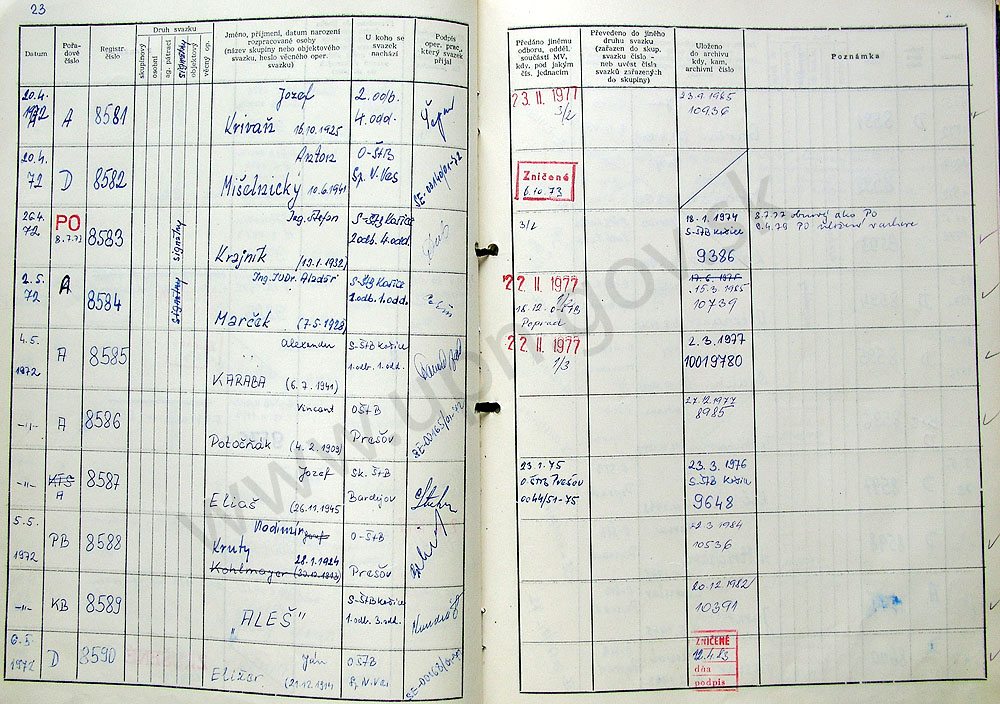 23
Datum
Pořadové číslo
Registr. číslo
Druh svazku
skupinový
osobní
sg. pátrací
signátny
objektový
věcný op.
Jméno, příjmení, datum narození
rozpracované osoby
(název skupiny nebo objektového
svazku, heslo věcného oper.
svazku)
U koho se
svazek
nachází
Podpis
oper. prac.
který svazek
přijal
Předáno jinému
odboru, odděl.
součásti MV,
kdy, pod jakým
čís. jednacím
Převedeno do jiného
druhu svazku
(zařazen do skup.
svazku čísla -
neb uvést čísla
svazků zařazených
do skupiny)
Uloženo
do archivu
kdy, kam,
archivní číslo
Poznámka
20.4.
1972
A
8581
Jozef
Krivaň 16.10.1925
2. odb.
4. odd.
23. II. 1977
3/2
10936
20.4.
72
D
8582
Anton
Mišelnický 10.6.1941
O-ŠTB
Sp. V. Ves
Zničené
6.10.73
26.4.
72
PO
8583
signátny
Ing. Štefan
Krajník
S-ŠTB Košice
2 odb. 4. odd.
3/2
18.1.1974
S-ŠTB Košice
9386
2.5.
72
A
8584
signátny
Marček (7.5.1923)
S-ŠTB Košice
1. odd.
22 II. 1977
O-ŠTB
Poprad
15.3.1985
10739
4.5.
1972
A
8585
Alexander
KARABA (6.7.1941)
S-ŠTB Košice
1. odb. 1. odd.
22 II. 1977
1/3
2.3.1977
10019780
-11-
A
8586
Vincent
Potočňák (4.2.1909)
OŠTB
Prešov
SE-00165/01-72
27.12.1977
8985
-11-
KTS
A
8587
Jozef
Eliaš (26.11.1945
Sk. ŠTB
Bardejov
23.1.75
O-ŠTB Prešov
0044/51-75
23.3.1976
S-ŠTB Košice
9648
5.5.
1972
PB
8588
Vladimír
Kruty 28.1.1924
Kohlmayer
O-ŠTB
Prešov
22.3.1984
10536
-11-
KB
8589
„ALEŠ"
S-ŠTB Košice
1. odb. 3. odd.
20.12.1982
10391
6.5.
1972
D
8590
Ján
Elizer (21.12.1914
OŠTB
Sp. N. Ves
ZNIČENÉ
dňa
podpis
www.upn.gov.sk